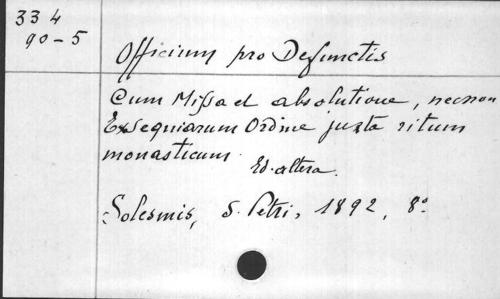 334
90-5
Officium pro Defunctis
Cum Missa et absolutione, necnon
Exsequiarum Ordine juxta ritum
monasticum.
Ed. altera.
Solesmis, S. Petri, 1892, 8°